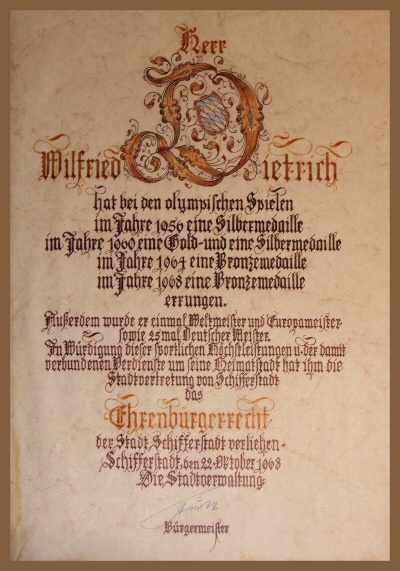 Herr
Wilfried Dietrich
hat bei den olympischen Spielen
im Jahre 1956 eine Silbermedaille
im Jahre 1960 eine Gold- und eine Silbermedaille
im Jahre 1964 eine Bronzemedaille
im Jahre 1968 eine Bronzemedaille
errungen.
Außerdem wurde er einmal Weltmeister und Europameister
sowie 25mal Deutscher Meister.
In Würdigung dieser sportlichen Höchstleistungen u. der damit
verbundenen Verdienste um seine Heimatstadt hat ihm die
Stadtvertretung von Schifferstadt
das
Ehrenbürgerrecht
der Stadt Schifferstadt verliehen.
Schifferstadt, den 22. Oktober 1968
Die Stadtverwaltung:
Bürgermeister